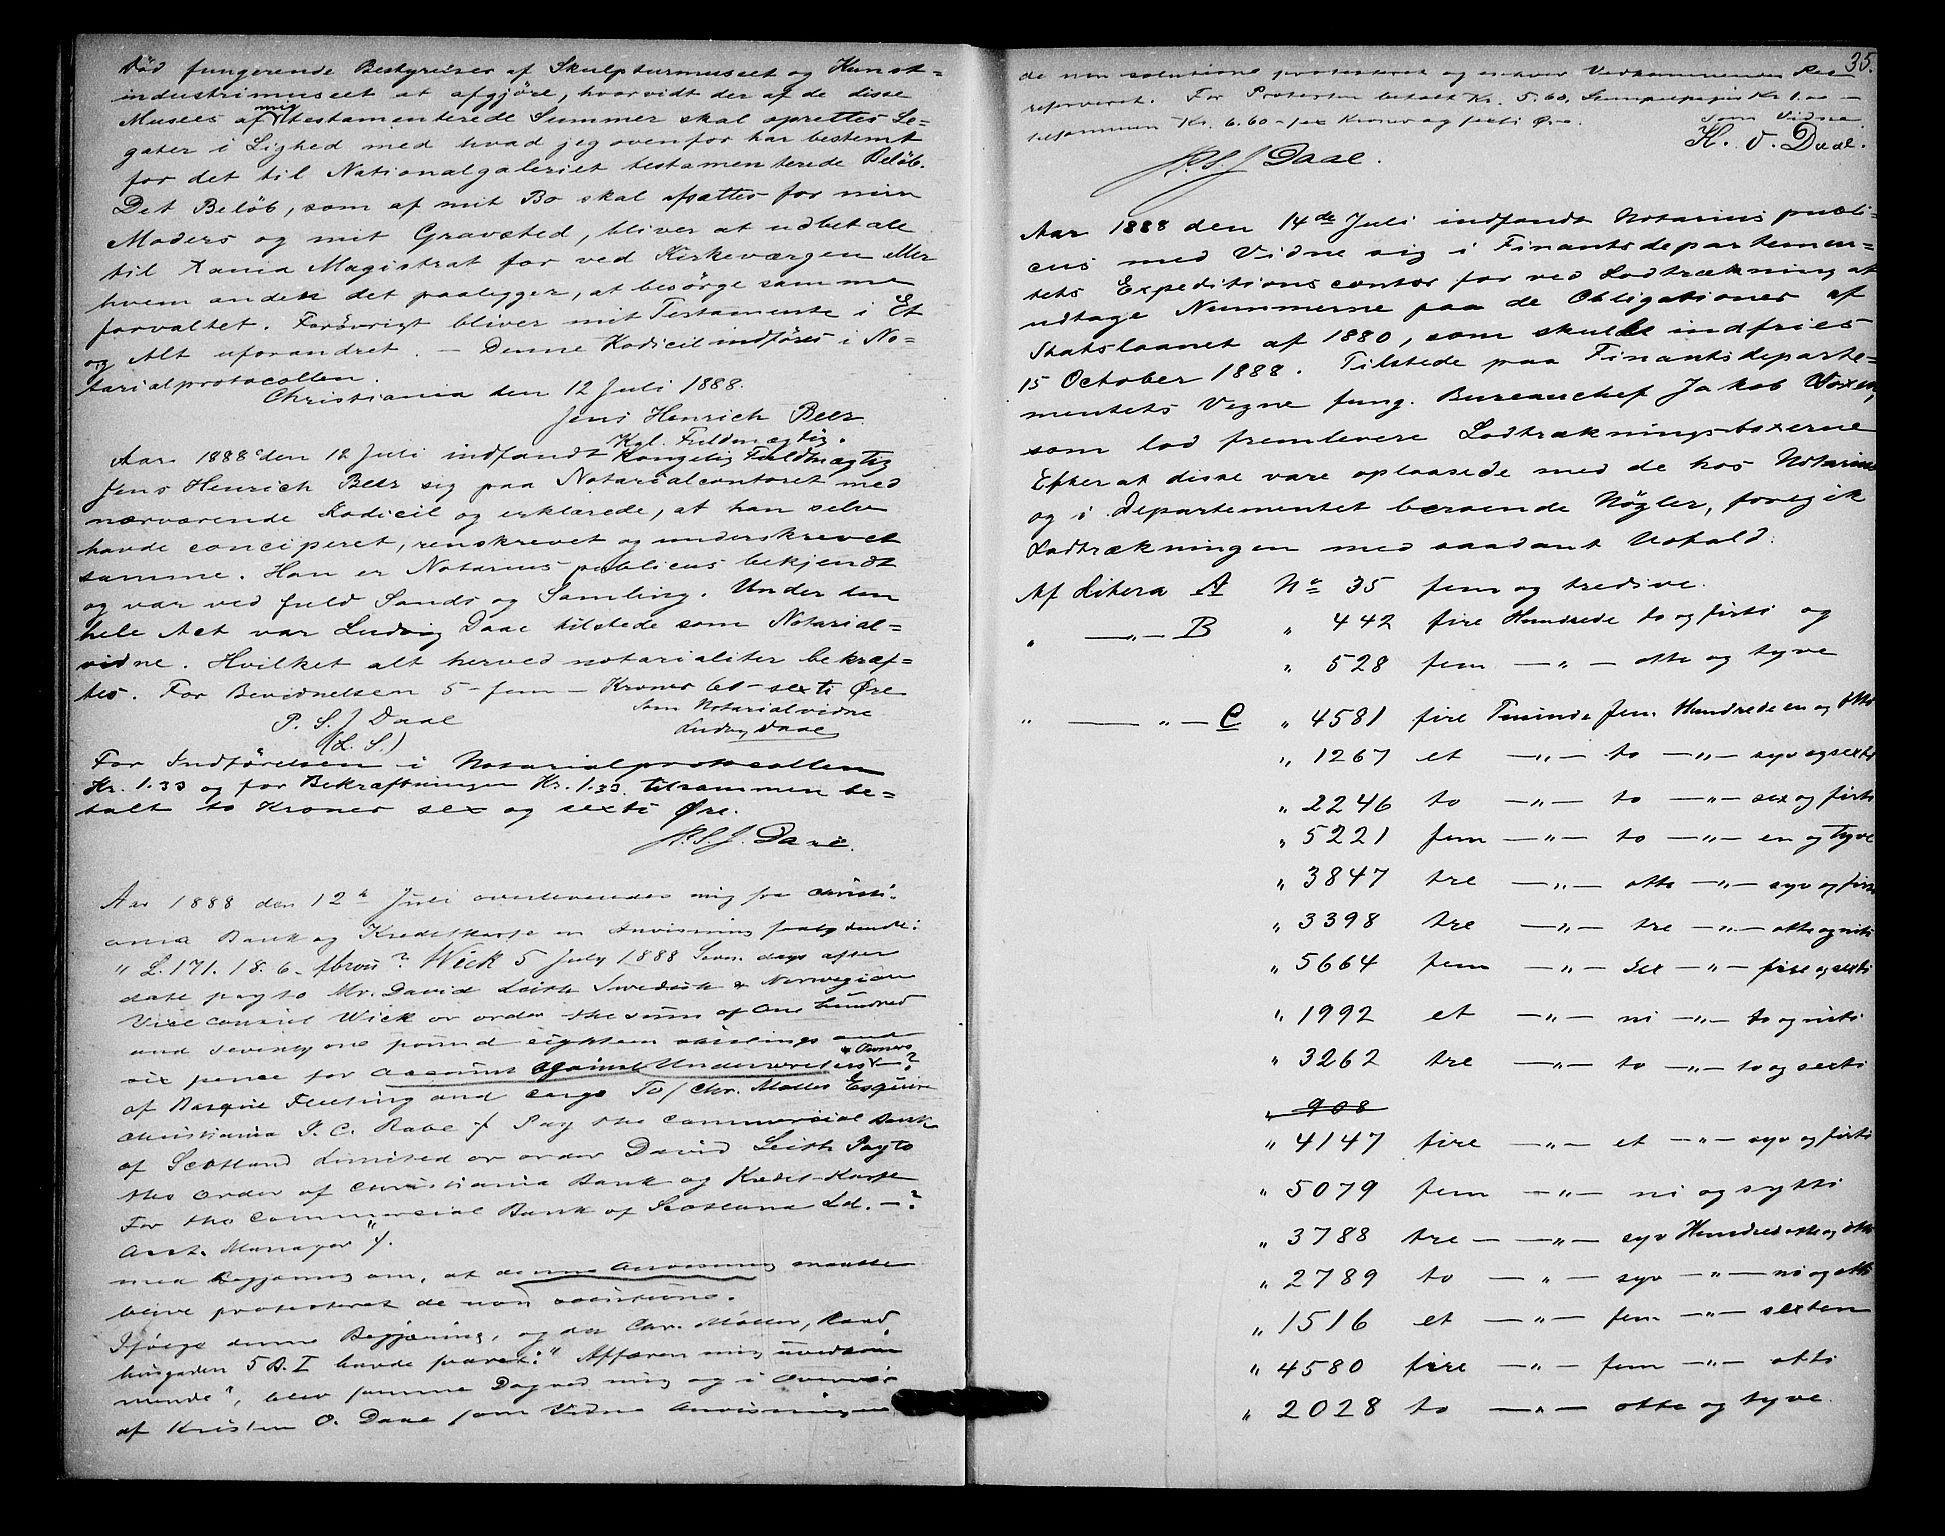 Död fungerende Bestyrelser af Skulpturmuseet og Kunst=
industrimuseet at afgjøre, hvorvidt der af de disse
Museer af mig testamenterede Summer skal oprettes Le=
gater i Lighed med hvad jeg ovenfor har bestemt
for det til Nationalgaleriet testamenterede Beløb.
Det Beløb, som af mit Bo skal afsættes for min
Moders og mit Gravsted, bliver at udbetale
til Xania Magistrat for ved Kirkeværgen eller
hvem anden det paaligger, at besørge samme
forvaltet. Forøvrigt bliver mit Testamente i Et
og Alt uforandret. — Denne Kodicil indføres i No=
tarialprotocollen.
Christiania den 12 Juli 1888.
Jens Henrich Beer
Kgl. Fuldmægtig.
Aar 1888 den 12 Juli indfandt Kongelig Fuldmægtig
Jens Henrich Beer sig paa Notarialcontoret med
nærværende Kodicil og erklærede, at han selv
havde conciperet, renskrevet og underskrevet
samme. Han er Notarius publicus bekjendt
og var ved fuld Sands og Samling. Under den
hele Act var Ludvig Daae tilstede som Notarial=
vidne. Hvilket alt herved notarialiter bekræf=
tes. For Bevidnelsen 5 - fem — Kroner 60 - sexti Øre
P. S. J Daae
som Notarialvidne
Ludvig Daae
(L. S.)
For Indførelsen i Notarialprotocollen
Kr. 1.33 og for Bekræftningen Kr. 1.33 tilsammen be=
talt to Kroner sex og sexti Øre.
P. S. J. Daae.
Aar 1888 den 12te Juli overleveredes mig fra Christi=
ania Bank og Kreditkasse en Anvisning saalydende:
" £. 171. 18. 6. Wick 5 July 1888 Seven days after
date pay to Mr. David Leith Swedish & Norwegian
Vice Consul Wick or order the sum of One hundred
and seventy one pound eighteen shillings and
& Owners
six pence for account against Underwriters —?
of Barque Fleeting and cargo To / Chr. Møller Esquire
Christiania J. C. Rabe / Pay the Commercial Bank
of Scotland Limited or order David Leith Pay to
the order of Christiania Bank og Kredit-Kasse
For the Commercial Bank of Scotland Ld. —?
Asst. Manager" /.
med Begjæring om, at denne Anvisning maatte
blive protesteret de non solutione.
Ifølge denne Begjæring, og da Chr. Møller, Raad=
husgaden 5 B. I havde svaret: "Affæren mig uvedkom=
mende", blev samme Dag ved mig og i Overvær
af Kristen O. Daae som Vidne Anvisningen
35.
de non solutione protesteret og enhver Vedkommendes Ret
reserveret. For Protesten betalt Kr. 5.60, Stempelpapir Kr 1.00 —
tilsammen Kr. 6.60 - sex Kroner og sexti Øre.
som Vidne
P. S. J Daae.
K. O. Daae.
Aar 1888 den 14de Juli indfandt Notarius publi=
cus med Vidne sig i Finantsdepartemen=
tets Expeditionscontor for ved Lodtrækning at
udtage Nummerne paa de Obligationer af
Statslaanet af 1880, som skulle indfries
15 October 1888. Tilstede paa Finantsdeparte=
mentets Vegne fung. Bureauchef Jakob
som lod fremlevere Lodtrækningsboxerne
Efter at disse vare oplaasede med de hos Notarius
og i Departementet beroende Nøgler, foregik
Lodtrækningen med saadant Udfald:
Af Litera A No 35 fem og tredive.
" —"— B " 442 fire Hundrede to og firti og
" 528 fem —"— otte og tyve
" —"— C " 4581 fire Tusinde fem Hundrede en og otti
" 1267 et —"— to —"— syv og sexti
" 2246 to —"— to —"— sex og firti
" 5221 fem —"— to —"— en og tyve
" 3847 tre —"— otte —"— syv og firti
" 3398 tre —"— tre —"— otte og niti
" 5664 fem —"— sex —"— fire og sexti
" 1992 et —"— ni —"— to og niti
" 3262 tre —"— to —"— to og sexti
" 908
" 4147 fire —"— et —"— syv og firti
" 5079 fem —"— ni og sytti
" 3788 tre —"— syv Hundred otte og otti
" 2789 to —"— syv —"— ni og otti
" 1516 et —"— fem —"— sexten
" 4580 fire —"— fem —"— otti
" 2028 to —"— otte og tyve.